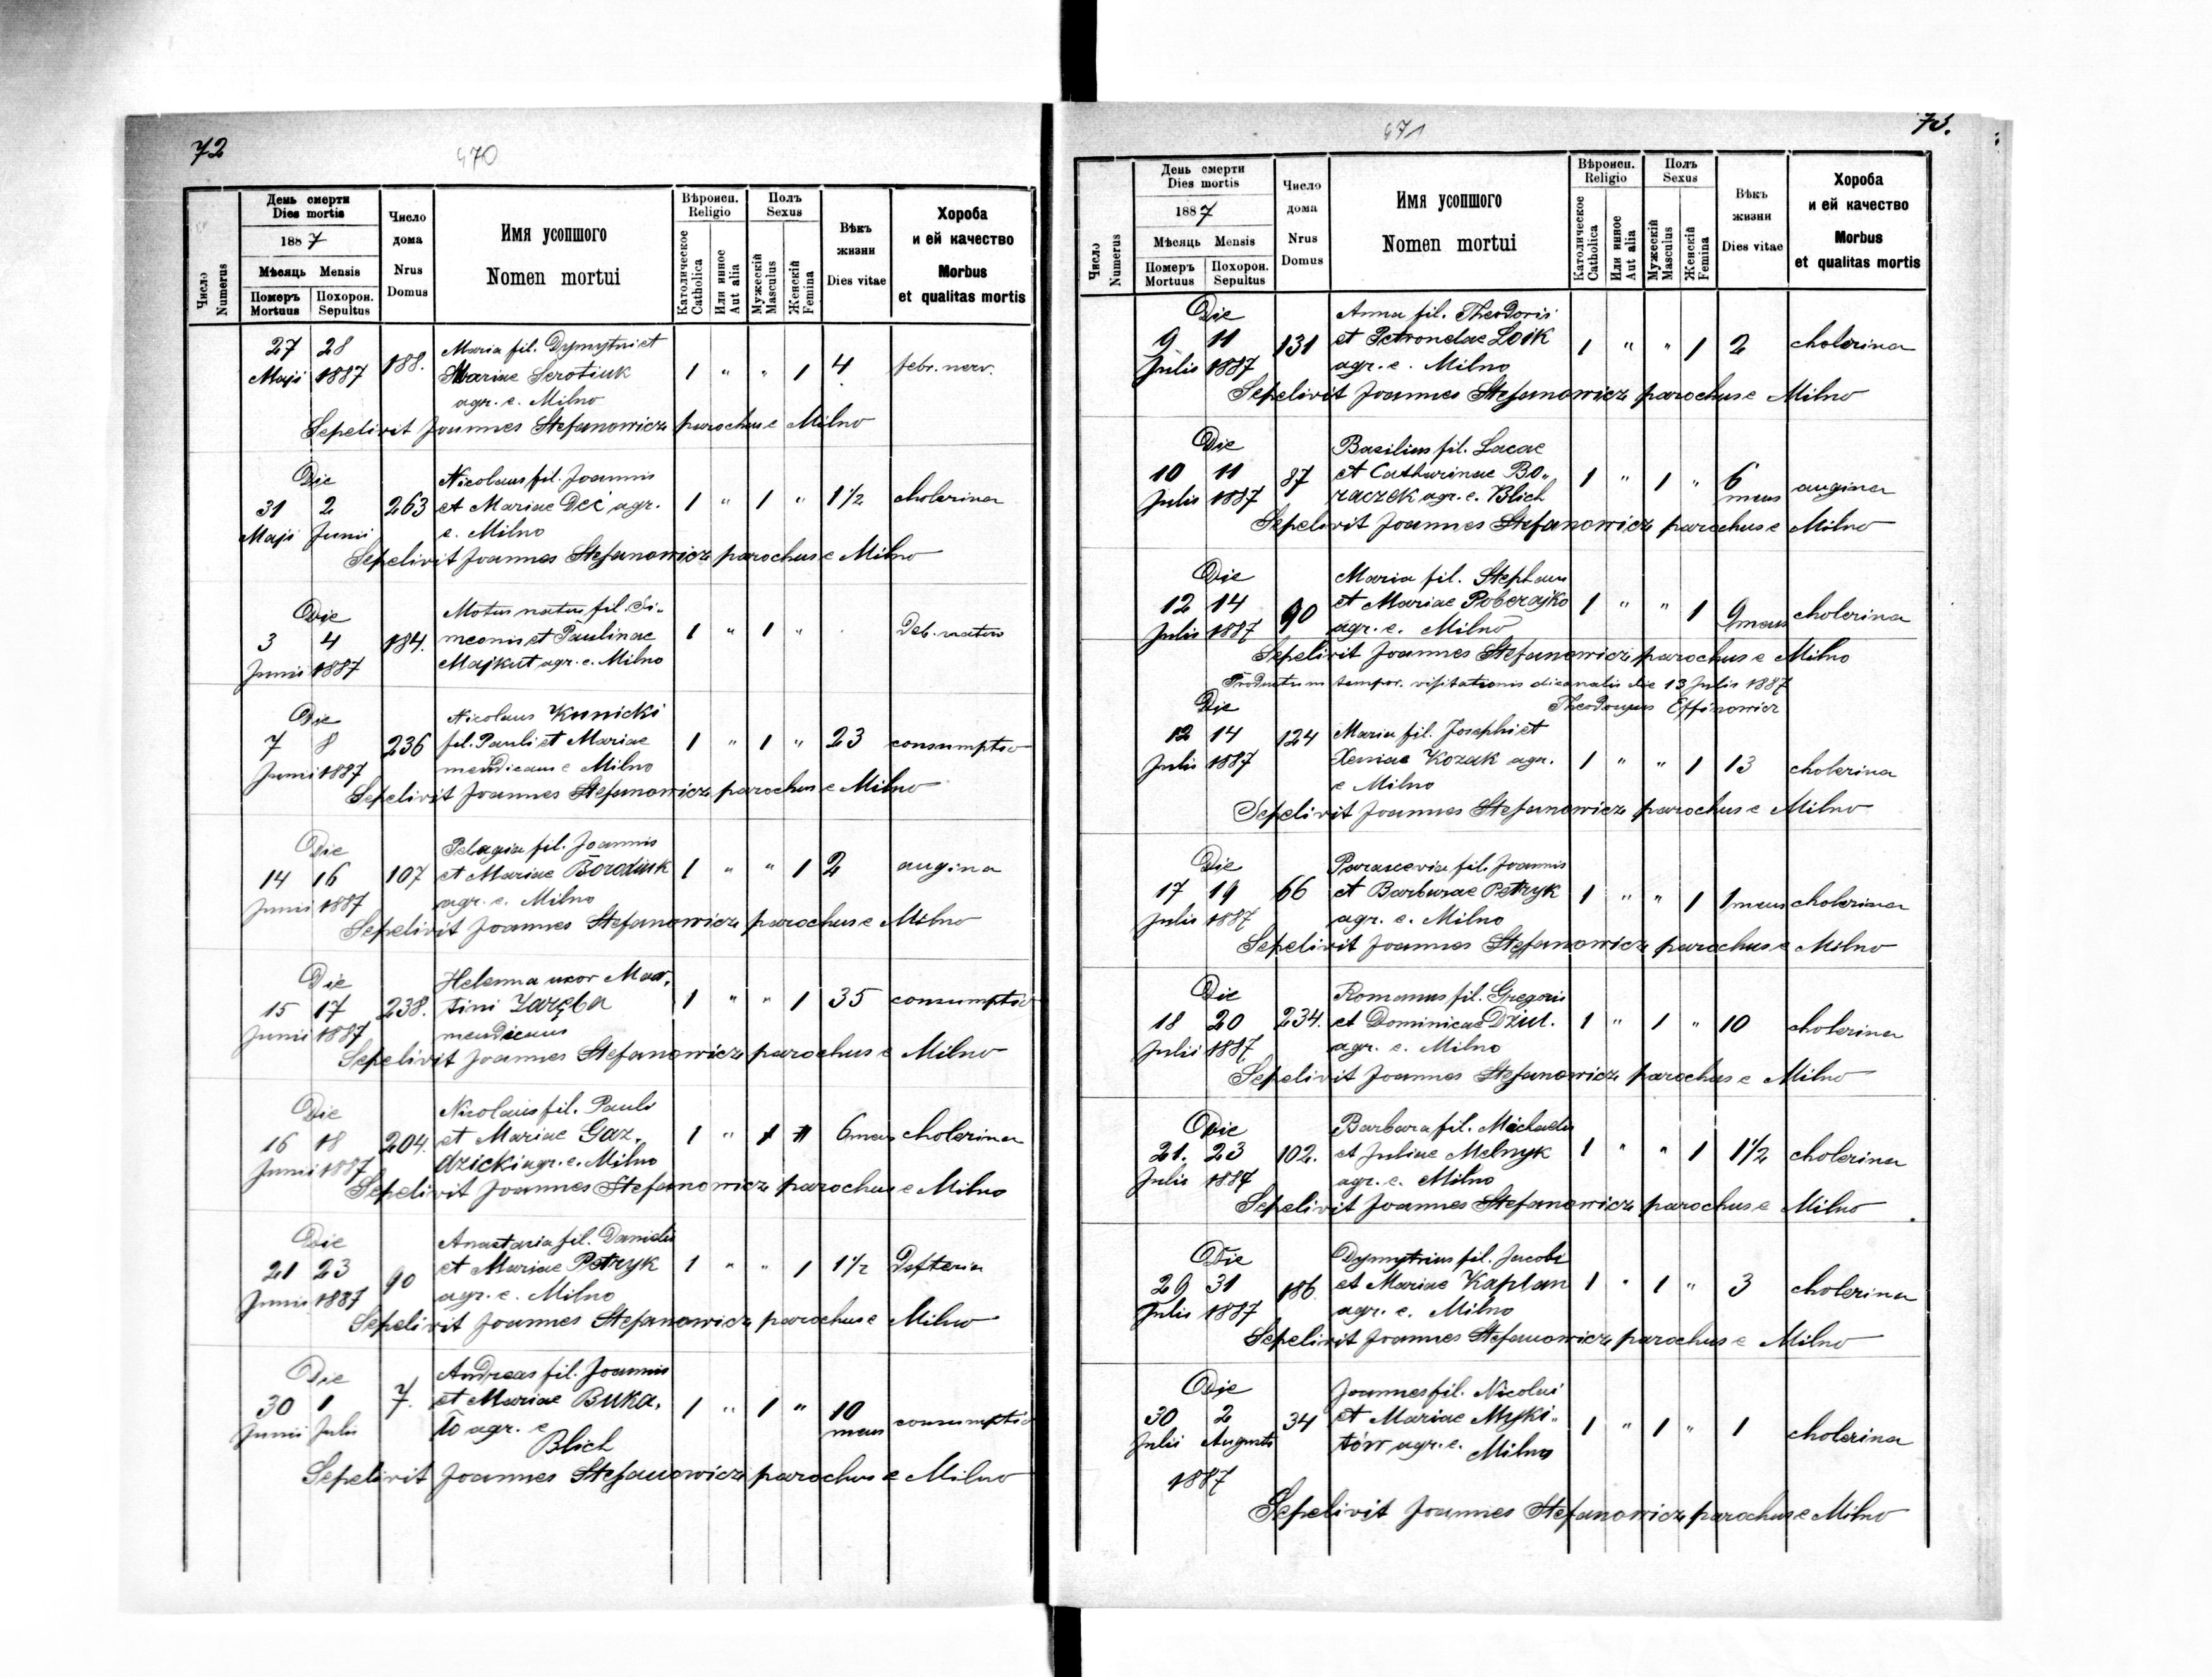 72
470
Число Numerus
День смерти
Dies mortis
1887
Мѣсяць Mensis
Померъ Mortuus
Похорон. Sepultus
Число дома
Nrus Domus
Имя усопшого
Nomen mortui
Вѣроисп. Religio
Католическое Catholica
Или инное Aut alia
Полъ Sexus
Мужескій Masculus
Женскій Femina
Вѣкъ жизни
Dies vitae
Хороба
и ей качество
Morbus
et qualitas mortis
Maria fil. Dymytri et
27 28 188. Mariae Serotiuk 1 " " 1 4 febr. nerv.
Maji 1887 agr. e. Milno
Sepelivit Joannes Stefanowicz parochus e Milno
Die Nicolaus fil. Joannis
31 2 263 et Mariae Deć agr. 1 " 1 " 1½ cholerina
Maji Junii e. Milno
Sepelivit Joannes Stefanowicz parochus e Milno
Die Motus natus fil. Si„
3 4 184. meonis et Paulinae 1 " 1 " Deb. natio
Junii 1887 Majkut agr. e. Milno
Die Nicolaus Kunicki
7 8 236 fil. Pauli et Mariae 1 " 1 " 23 consumptio
Junii 1887 mendicans e Milno
Sepelivit Joannes Stefanowicz parochus e Milno
Die Pelagia fil. Joannis
14 16 107 et Mariae Borodiuk 1 " " 1 2 angina
Junii 1887 agr. e. Milno
Sepelivit Joannes Stefanowicz parochus e Milno
Die Helenna uxor Mar„
15 17 238. tini Zaręba 1 " " 1 35 consumptio
Junii 1887 mendicans
Sepelivit Joannes Stefanowicz parochus e Milno
Die Nicolaus fil. Pauli
16 18 204. et Mariae Gaz„ 1 " 1 " 6 mens cholerina
Junii 1887 dzicki agr. e. Milno
Sepelivit Joannes Stefanowicz parochus e Milno
Die Anastasia fil. Danielis
21 23 90 et Mariae Petryk 1 " " 1 1½ Defteria
Junii 1887 agr. e. Milno
Sepelivit Joannes Stefanowicz parochus e Milno
Die Andreas fil. Joannis
30 1 7. et Mariae Buka„ 1 " 1 " 10 mens consumptio
Junii Julii ło agr. e
Blich
Sepelivit Joannes Stefanowicz parochus e Milno
471
73.
Число Numerus
День смерти
Dies mortis
1887
Мѣсяць Mensis
Померъ Mortuus
Похорон. Sepultus
Число дома
Nrus Domus
Имя усопшого
Nomen mortui
Вѣроисп. Religio
Католическое Catholica
Или инное Aut alia
Полъ Sexus
Мужескій Masculus
Женскій Femina
Вѣкъ жизни
Dies vitae
Хороба
и ей качество
Morbus
et qualitas mortis
Die Anna fil. Theodoris
9 11 131 et Petronelae Loik 1 " " 1 2 cholerina
Julis 1887 agr. e. Milno
Sepelivit Joannes Stefanowicz parochus e Milno
Die Basilius fil. Lucae
10 11 87 et Catharinae Bo„ 1 " 1 " 6 mens angina
Julis 1887 raczek agr. e. Blich
Sepelivit Joannes Stefanowicz parochus e Milno
Die Maria fil. Stephani
12 14 90 et Mariae Poberajko 1 " " 1 9 mens cholerina
Julis 1887 agr. e. Milno
Sepelivit Joannes Stefanowicz parochus e Milno
Productum tempor. visitationis dicanalis die 13 Julis 1887
Effinowicz
Die
12 14 124 Maria fil. Josephi et
Julis 1887 Xeniae Kozak agr. 1 " " 1 13 cholerina
e Milno
Sepelivit Joannes Stefanowicz parochus e Milno
Die Parascevia fil. Joannis
17 19 66 et Barbarae Petryk 1 " " 1 1 mens cholerina
Julis 1887 agr. e. Milno
Sepelivit Joannes Stefanowicz parochus e Milno
Die Romanus fil. Gregoris
18 20 234. et Dominicae Dziul. 1 " 1 " 10 cholerina
Julii 1887 agr. e. Milno
Sepelivit Joannes Stefanowicz parochus e Milno
Die Barbara fil. Michaelis
21. 23 102. et Juliae Melnyk 1 " " 1 1½ cholerina
Julis 1887 agr. e. Milno
Sepelivit Joannes Stefanowicz parochus e Milno
Die Dymytrius fil. Jacobi
29 31 186 et Mariae Kaplan 1 " 1 " 3 cholerina
Julis 1887 agr. e. Milno
Sepelivit Joannes Stefanowicz parochus e Milno
Die Joannes fil. Nicolai
30 2 34 et Mariae Myki„ 1 " 1 " 1 cholerina
Julii Augusti tów agr. e. Milno
1887
Sepelivit Joannes Stefanowicz parochus e Milno